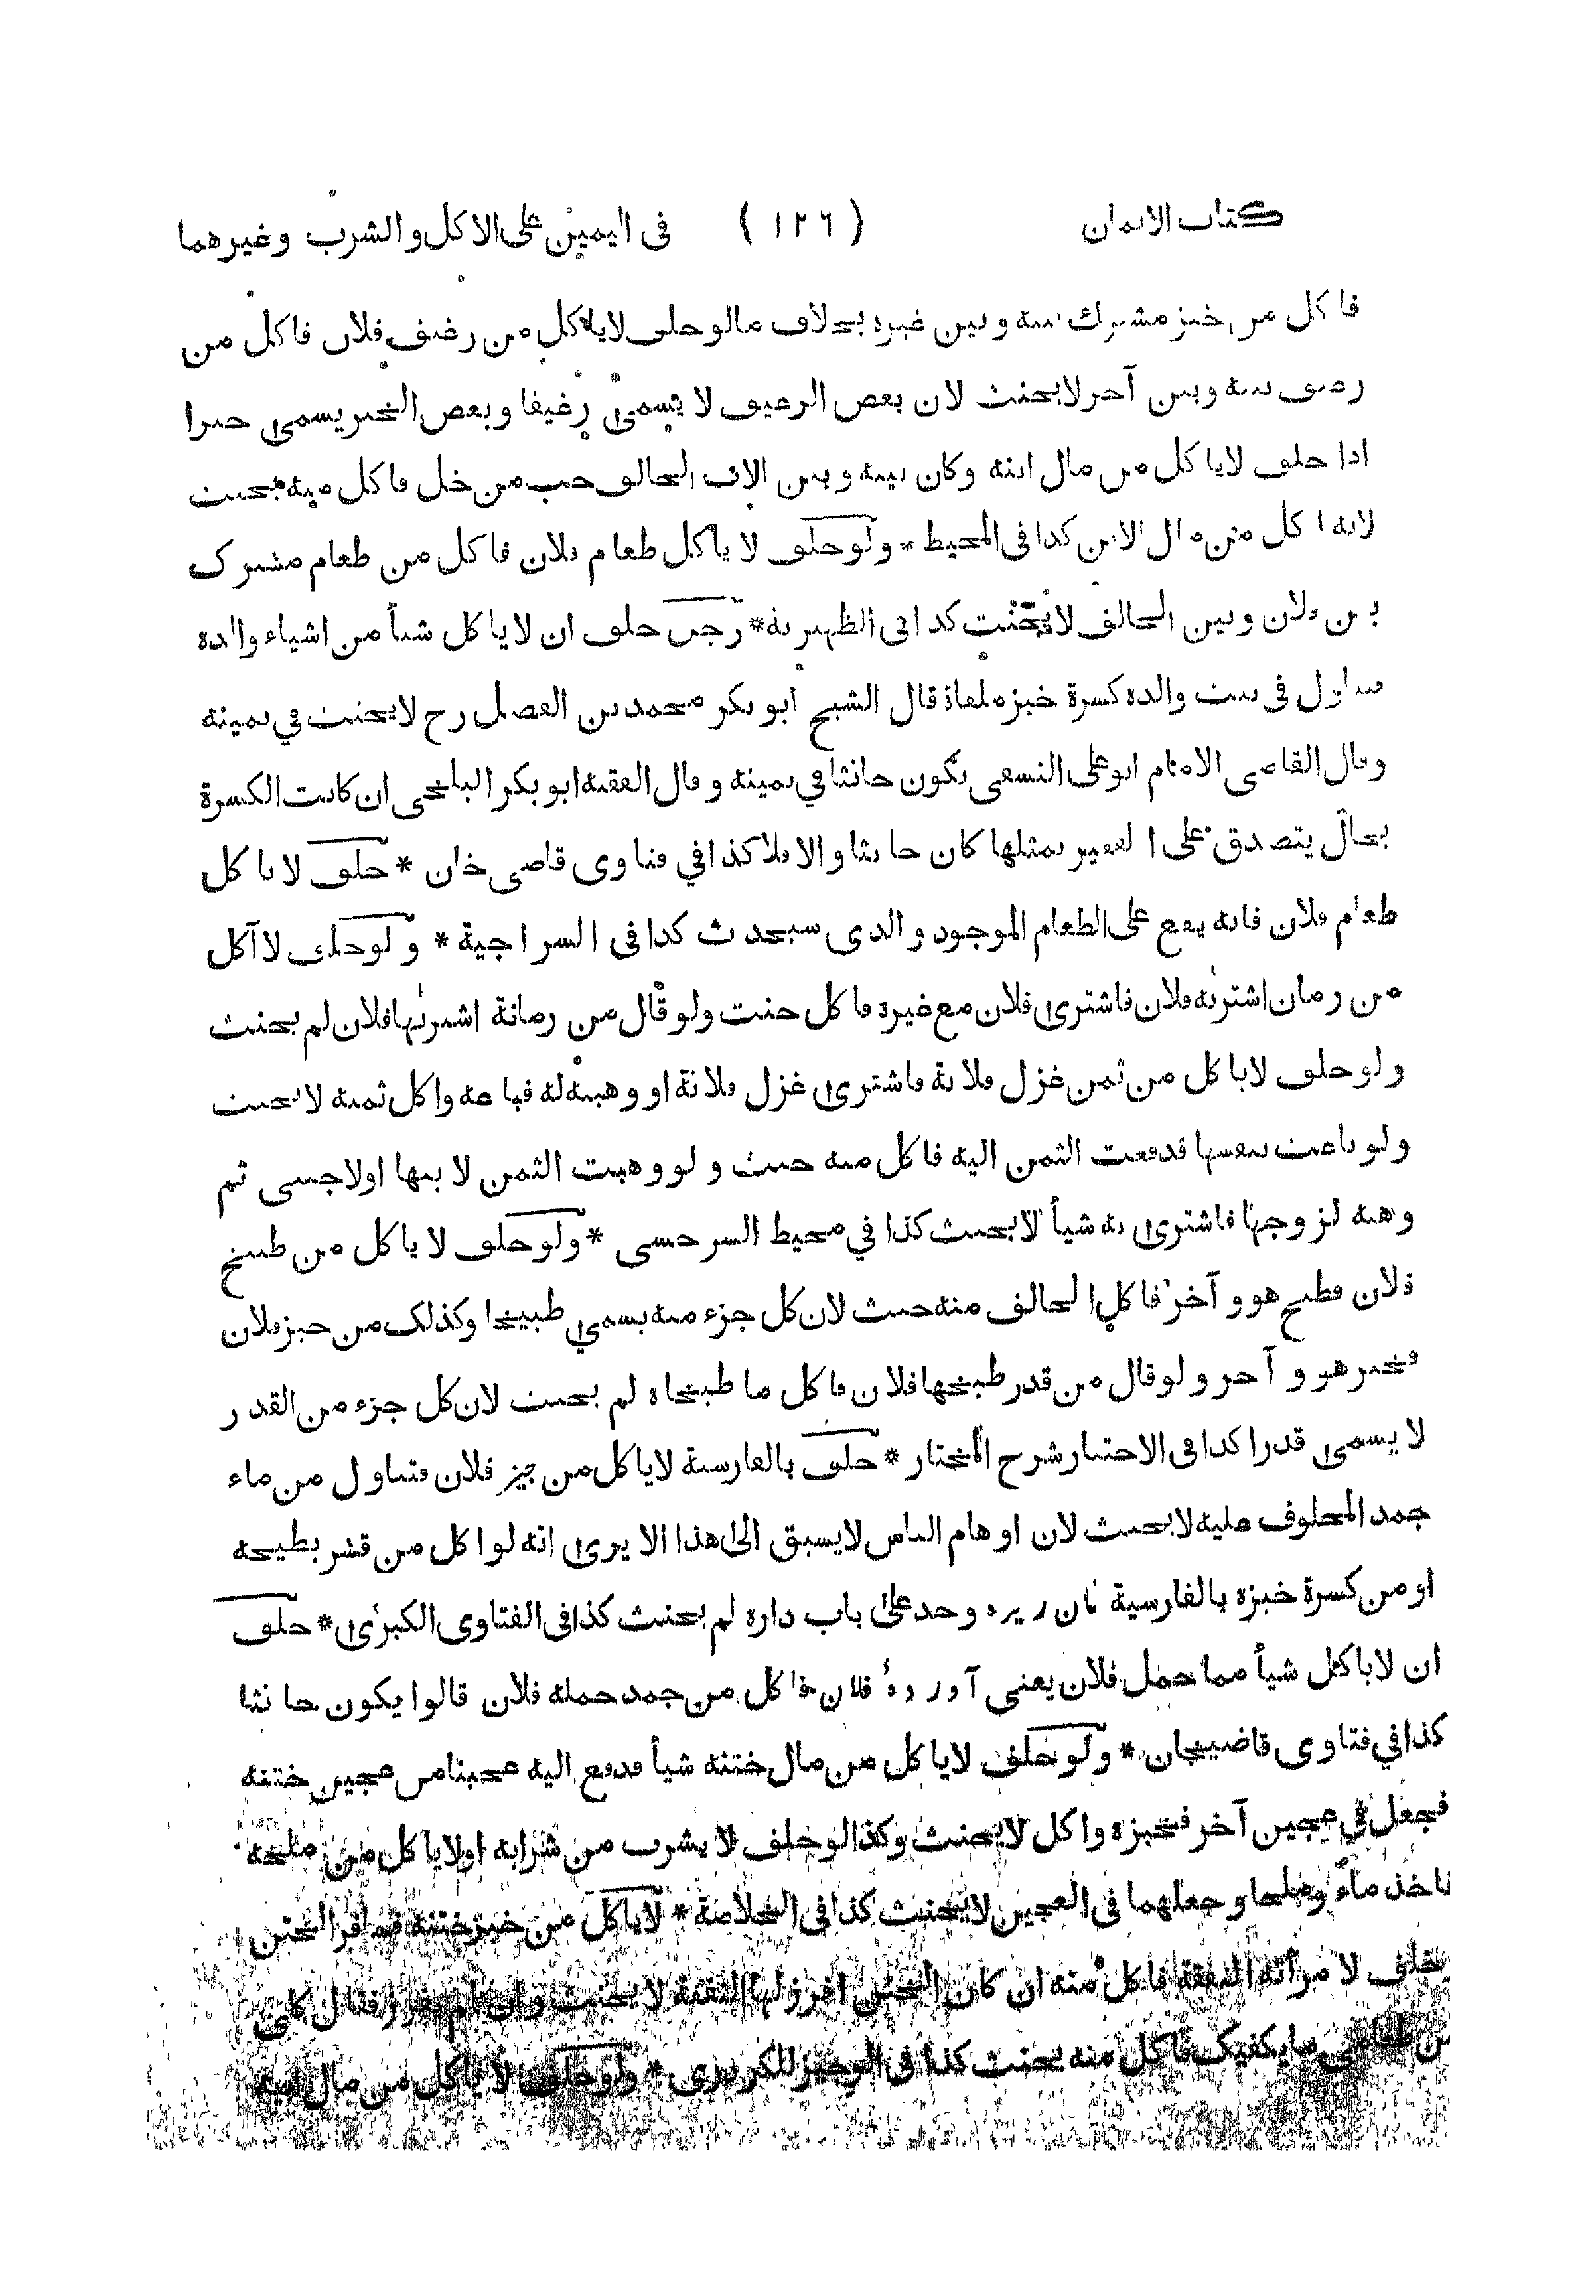 كتاب الايمان (١٢٦) فى اليمين على الاكل والشرب وغيرهما
فاكل من خبز مشترك بينه وبين غيره بخلاف مالو حلف لاياكل من رغيف فلان فاكل من
رغيف بينه وبين آخر لايحنث لان بعض الرغيف لا يسمى رغيفا وبعض الخبز يسمى خبزا
اذا حلف لاياكل من مال ابنه وكان بينه وبين الابن الحالف حب من خل فاكل منه يحنث
لانه اكل من مال الابن كذا فى المحيط * ولو حلف لا ياكل طعام فلان فاكل من طعام مشترك
بين فلان وبين الحالف لا يحنث كذا فى الظهيرية * رجل حلف ان لاياكل شيأ من اشياء والده
فتناول فى بيت والده كسرة خبز ملقاة قال الشيخ ابو بكر محمد بن الفضل رح لايحنث في يمينه
وقال القاضى الامام ابو على النسفى يكون حانثا في يمينه وقال الفقيه ابو بكر البلخى ان كانت الكسرة
بحال يتصدق على الفقير بمثلها كان حانثا والا فلا كذا في فتاوى قاضى خان * حلف لا ياكل
طعام فلان فانه يقع على الطعام الموجود والذى سيحدث كذا فى السراجية * ولو حلف لا آكل
من رمان اشتريه فلان فاشترى فلان مع غيره فاكل حنث ولو قال من رمانة اشتريها فلان لم يحنث
ولو حلف لاياكل من ثمن غزل فلانة فاشترى غزل فلانة او وهبته له فباعه واكل ثمنه لا يحنث
ولو باعت بنفسها فدفعت الثمن اليه فاكل منه حنث ولو وهبت الثمن لابنها اولاجنبى ثم
وهبه لزوجها فاشترى به شيأ لايحنث كذا في محيط السرخسى * ولو حلف لا ياكل من طبيخ
فلان فطبخ هو وآخر فاكل الحالف منه حنث لان كل جزء منه يسمى طبيخا وكذلك من خبز فلان
فخبز هو وآخر ولو قال من قدر طبخها فلان فاكل ما طبخاه لم يحنث لان كل جزء من القدر
لا يسمى قدرا كذا فى الاختيار شرح المختار * حلف بالفارسية لاياكل من چيز فلان فتناول من ماء
جمد المحلوف عليه لايحنث لان اوهام الناس لايسبق الى هذا الا يرى انه لو اكل من قشر بطيخه
او من كسرة خبزه بالفارسية نان ريزه وجد على باب داره لم يحنث كذا فى الفتاوى الكبرى * حلف
ان لاياكل شيأ مما حمل فلان يعنى آورده فلان فاكل من جمد حمله فلان قالوا يكون حانثا
كذا في فتاوى قاضيخان * ولو حلف لاياكل من مال ختنه شيأ فدفع اليه عجينا من عجين ختنه
فجعل في عجين آخر فخبزه واكل لايحنث وكذا لو حلف لا يشرب من شرابه اولاياكل من ملحه
فاخذ ماء وملحا وجعلهما فى العجين لايحنث كذا فى الخلاصة * لاياكل من خبز ختنه فسافر الختن
وخلف لامرأته النفقة فاكل منه ان كان الختن افرز لها النفقة لا يحنث وان لم يفرز فقال كلى
من طعامى مايكفيك فاكل منه يحنث كذا فى الوجيز للكردرى * ولو حلف لا ياكل من مال ابيه